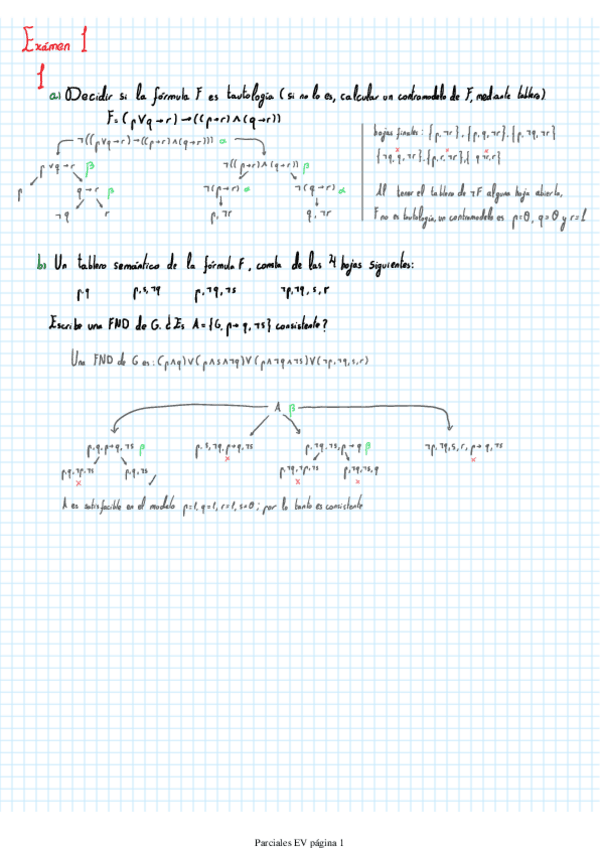 Exámen 1
1
a) Decidir si la fórmula F es tautología (si no lo es, calcular un contramodelo de F, mediante tablero)
F=(p∨q→r)→((p→r)∧(q→r))
¬((p∨q→r)→((p→r)∧(q→r))) α
p∨q→r β
¬((p→r)∧(q→r)) β
p
q→r β
¬(p→r) α
¬(q→r) α
¬q
r
p,¬r
q,¬r
hojas finales: {p,¬r}, {p,q,¬r}, {p,¬q,¬r}
{¬q,q,¬r}, {p,r,¬r}, { q¬r,r}
Al tener el tablero de ¬F alguna hoja abierta,
F no es tautología, un contramodelo es p=0, q=0 y r=1
b) Un tablero semántico de la fórmula F, consta de las 4 hojas siguientes:
p,q p,s,¬q p,¬q,¬s ¬p,¬q,s,r
Escribe una FND de G. ¿Es A={G, p→q,¬s} consistente?
Una FND de G es: (p∧q)∨(p∧s∧¬q)∨(p∧¬q∧¬s)∨(¬p,¬q,s,r)
A β
p,q,p→q,¬s β p,s,¬q,p→q,¬s p,¬q,¬s,p→q β ¬p,¬q,s,r,p→q,¬s
p,q,¬p,¬s p,q,¬s p,¬q,¬p,¬s p,¬q,¬s,q
A es satisfacible en el modelo p=1, q=1, r=1, s=0; por lo tanto es consistente
Parciales EV página 1